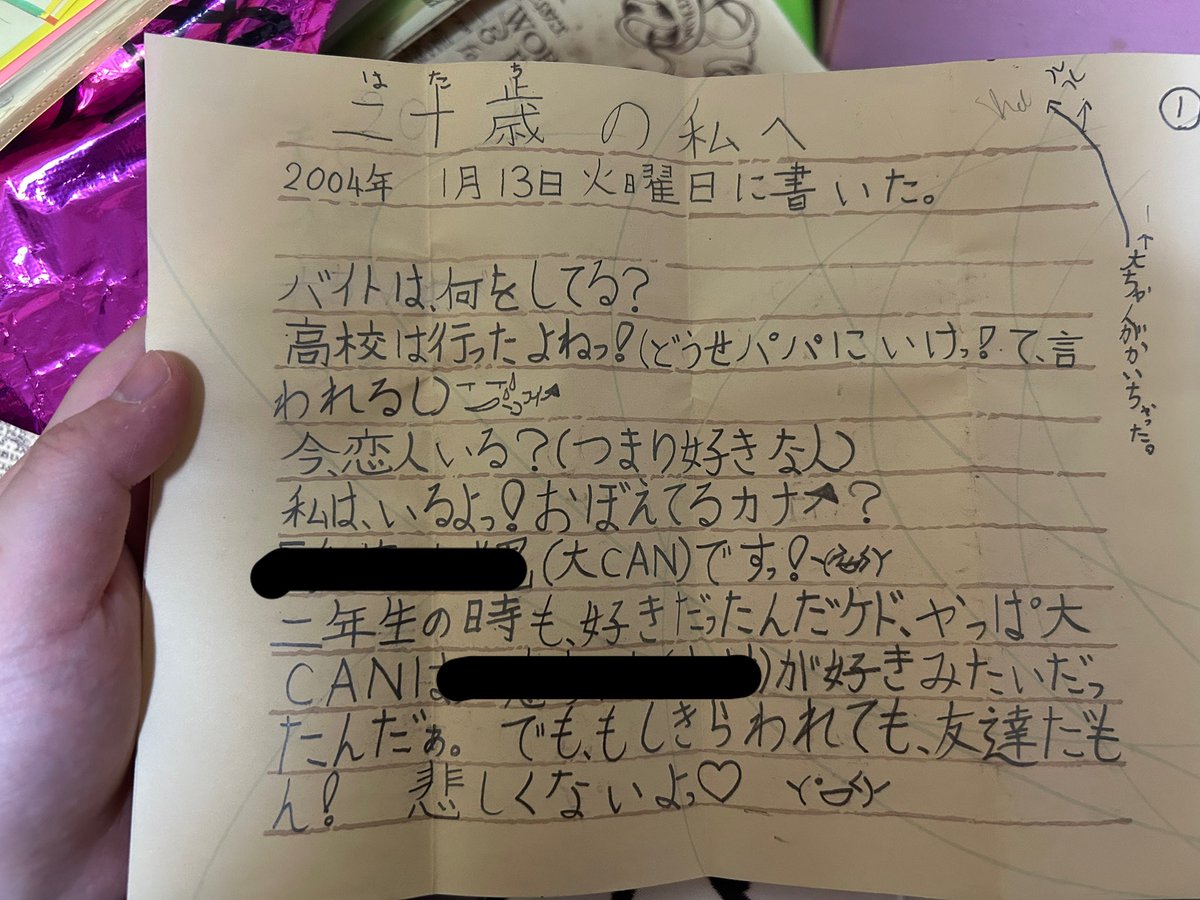 はたち
二十歳の私へ
①
2004年 1月13日火曜日に書いた。
バイトは、何をしてる?
高校は行ったよねっ!(どうせパパにいけっ!て、言
われるし)
今、恋人いる?(つまり好きな人)
私は、いるよっ!おぼえてるカナ↗?
(大CAN)ですっ!
二年生の時も、好きだったんだケド、やっぱ大
CANは)が好きみたいだっ
たんだぁ。 でも、もしきらわれても、友達だも
ん! 悲しくないよっ♡
↑大ちゃんがかいちゃった。